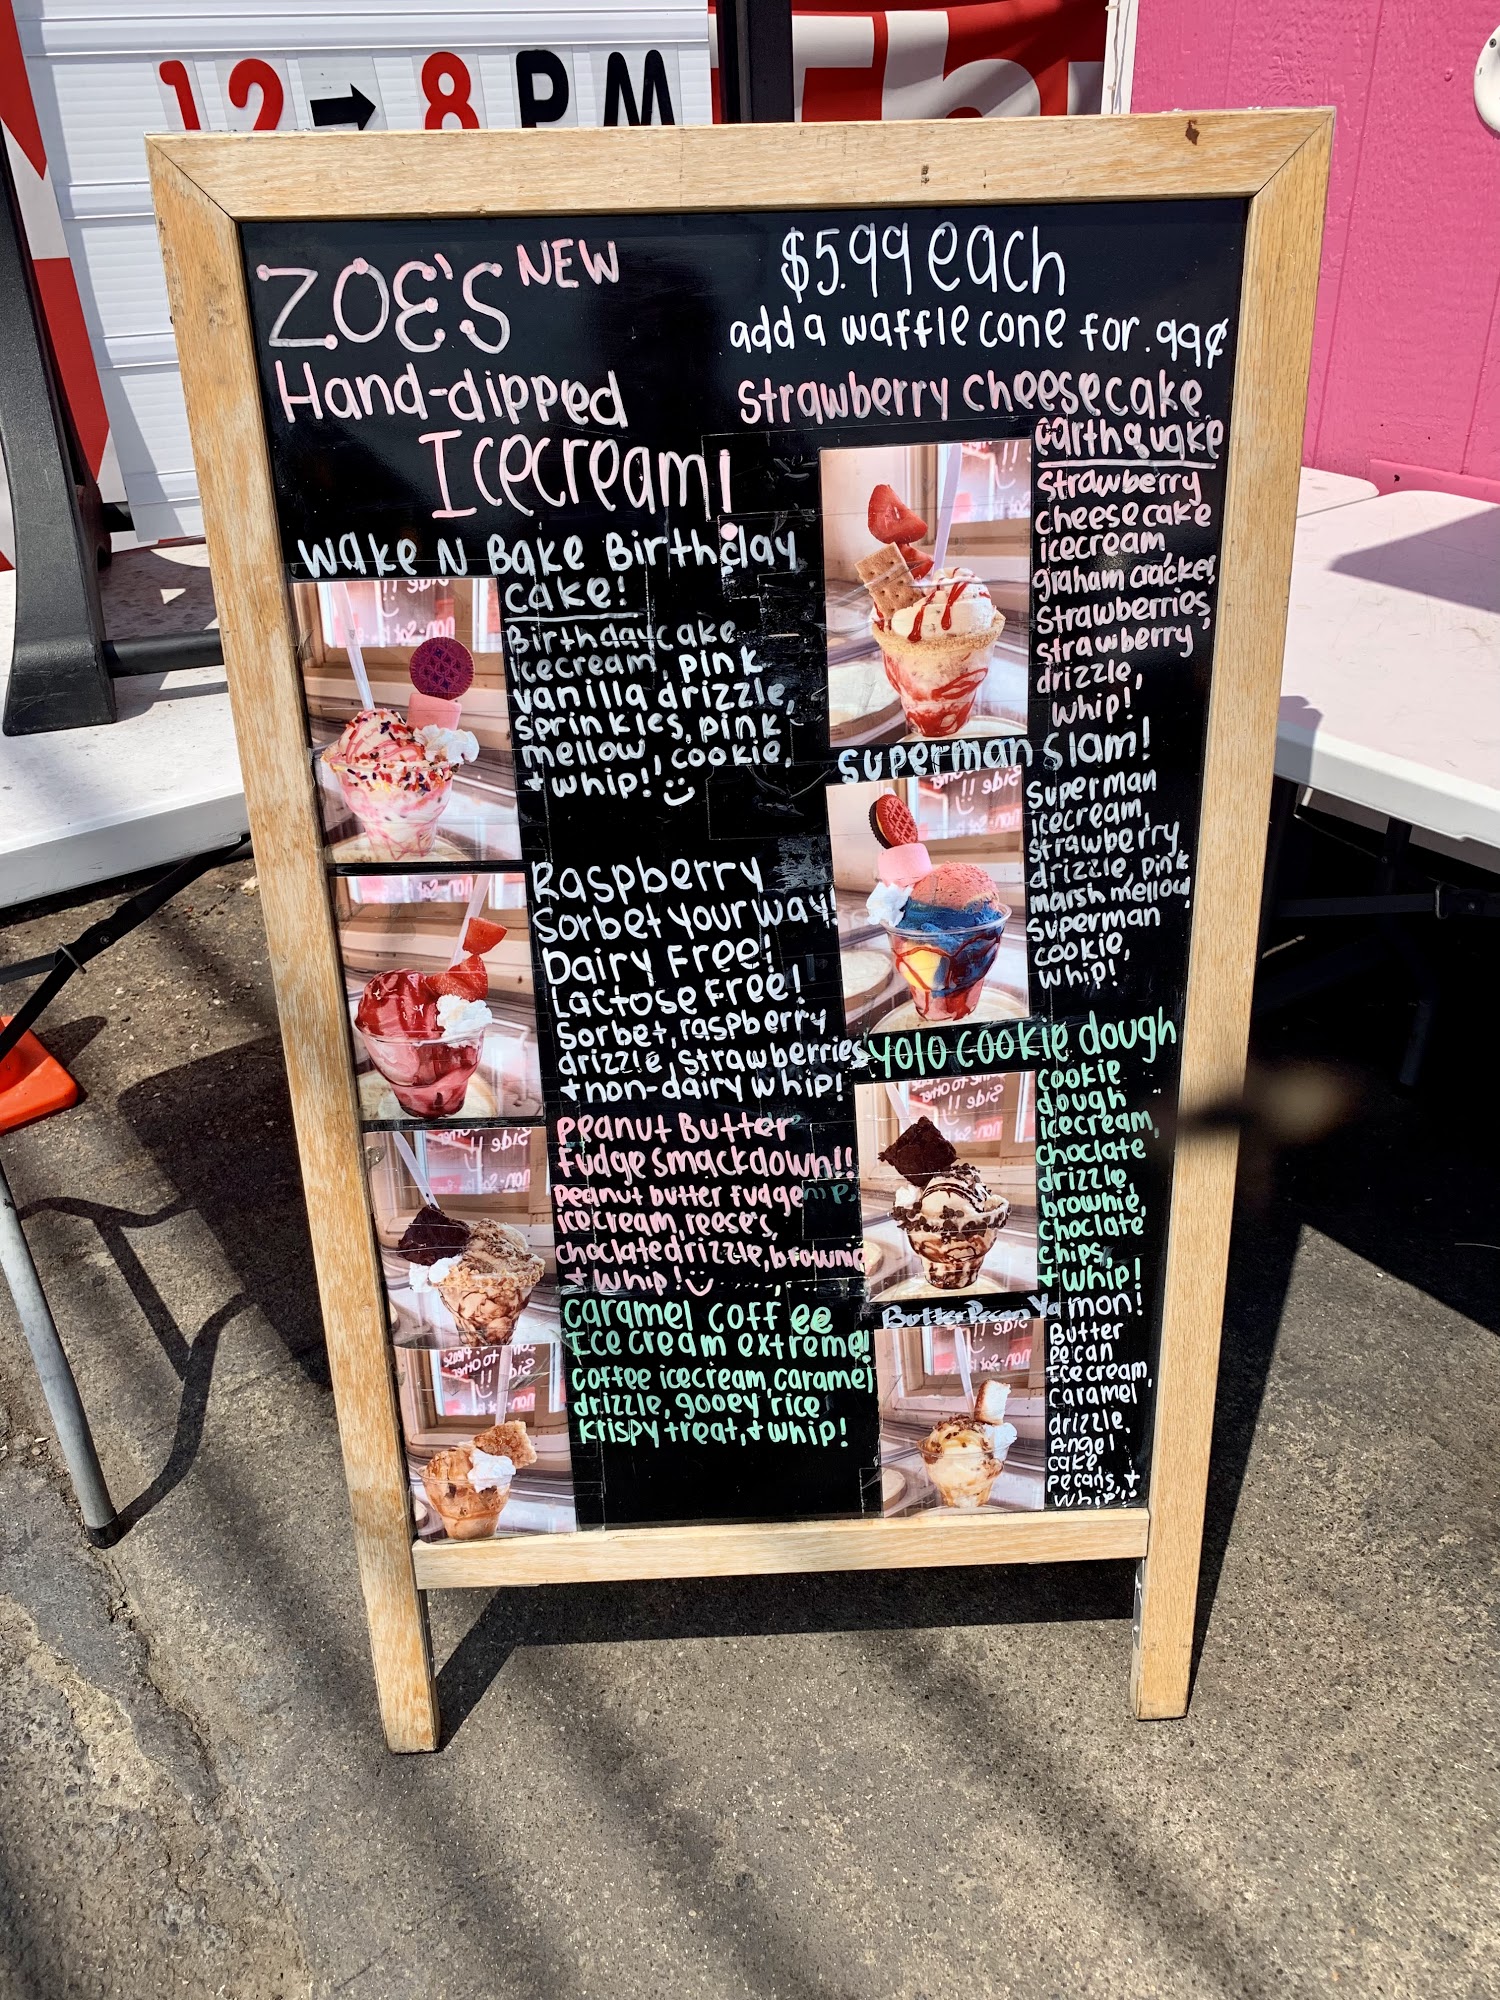 12 → 8 PM
ZOE'S NEW
Hand-dipped
Icecream!
$5.99 each
add a waffle cone for .99¢
Wake N Bake Birthday
Cake!
Birthday Cake
icecream, pink
vanilla drizzle,
sprinkles, pink
mellow, cookie,
+ whip!
Raspberry
Sorbet your way!
Dairy Free!
Lactose Free!
Sorbet, raspberry
drizzle, strawberries
+ non-dairy whip!
Peanut Butter
Fudge Smackdown!!
Peanut butter fudge
icecream, reese's,
choclate drizzle, brownie
+ whip!
Caramel Coffee
Ice cream extreme!
Coffee icecream, caramel
drizzle, gooey rice
krispy treat, + whip!
Strawberry Cheesecake
earthquake
Strawberry
cheesecake
icecream,
graham cracker,
Strawberries,
strawberry
drizzle,
whip!
Superman Slam!
Superman
icecream,
strawberry
drizzle, pink
marshmellow,
Superman
cookie,
whip!
Yolo cookie dough
cookie
dough
icecream,
choclate
drizzle,
brownie,
choclate
chips,
+ whip!
Butter Pecan Yamon!
Butter
Pecan
Ice cream,
Caramel
drizzle,
Angel
cake,
pecans, +
whip!